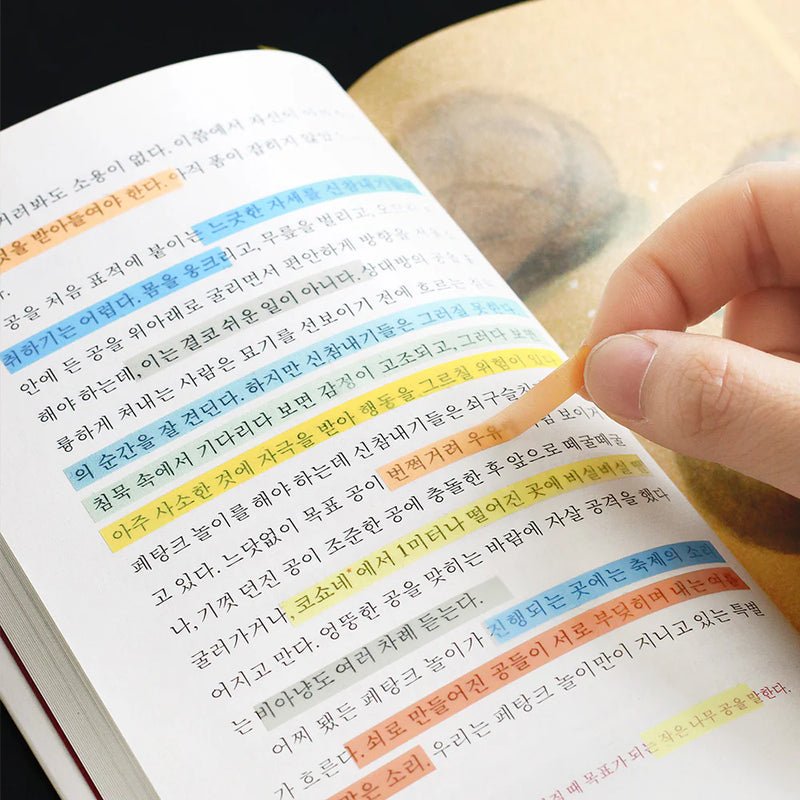 거려봐도 소용이 없다. 이쯤에서 자신의
것을 받아들여야 한다. 아직 폼이 잡히지 않았
공을 처음 표적에 붙이는 느긋한 자세를 신참내기들이
취하기는 어렵다. 몸을 웅크리고, 무릎을 벌리고,
안에 든 공을 위아래로 굴리면서 편안하게 방향을
해야 하는데, 이는 결코 쉬운 일이 아니다. 상대방의 공을
륭하게 쳐내는 사람은 묘기를 선보이기 전에 흐르는
의 순간을 잘 견딘다. 하지만 신참내기들은 그러질 못한다.
침묵 속에서 기다리다 보면 감정이 고조되고, 그러다 보면
아주 사소한 것에 자극을 받아 행동을 그르칠 위험이 있다.
페탕크 놀이를 해야 하는데 신참내기들은 쇠구슬치기
고 있다. 느닷없이 목표 공이 번쩍거려 우유 보이거
나, 기껏 던진 공이 조준한 공에 충돌한 후 앞으로 떼굴떼굴
굴러가거나, 코쇼네*에서 1미터나 떨어진 곳에 비실비실
어지고 만다. 엉뚱한 공을 맞히는 바람에 자살 공격을 했다
는 비아냥도 여러 차례 듣는다.
어찌 됐든 페탕크 놀이가 진행되는 곳에는 축제의 소리
가 흐른다. 쇠로 만들어진 공들이 서로 부딪히며 내는 여름
같은 소리. 우리는 페탕크 놀이만이 지니고 있는 특별
때 목표가 되는 작은 나무 공을 말한다.